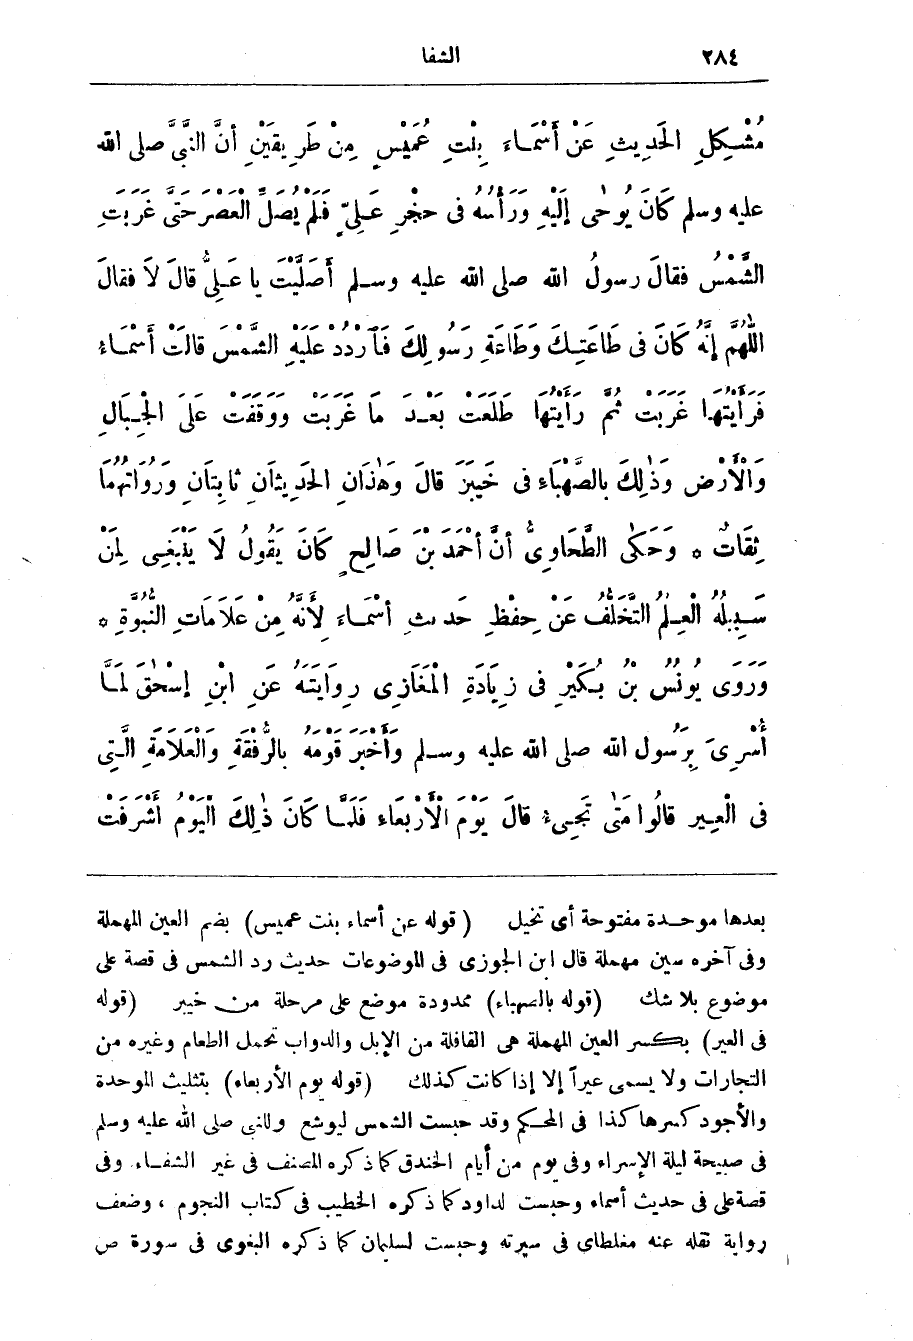 ٢٨٤ الشفا
مُشْكِلِ الحَدِيثِ عَنْ أَسْمَاءَ بِنْتِ عُمَيْسٍ مِنْ طَرِيقَيْنِ أَنَّ النَّبِيَّ صلى الله
عليه وسلم كَانَ يُوحَى إِلَيْهِ وَرَأْسُهُ فى حِجْرِ عَلِيٍّ فَلَمْ يُصَلِّ الْعَصْرَ حَتَّى غَرَبَتِ
الشَّمْسُ فقالَ رسولُ الله صلى الله عليه وسلم أَصَلَّيْتَ يا عَلِيُّ قالَ لَا فقالَ
اللّٰهُمَّ إِنَّهُ كَانَ فى طَاعَتِكَ وَطَاعَةِ رَسُولِكَ فَارْدُدْ عَلَيْهِ الشَّمْسَ قالَتْ أَسْمَاءُ
فَرَأَيْتُهَا غَرَبَتْ ثُمَّ رَأَيْتُهَا طَلَعَتْ بَعْدَ مَا غَرَبَتْ وَوَقَفَتْ عَلَى الْجِبَالِ
وَالْأَرْضِ وَذٰلِكَ بِالصَّهْبَاءِ فى خَيْبَرَ قالَ وَهٰذَانِ الحَدِيثَانِ ثَابِتَانِ وَرُوَاتُهُمَا
ثِقَاتٌ * وَحَكَى الطَّحَاوِىُّ أَنَّ أَحْمَدَ بْنَ صَالِحٍ كَانَ يَقُولُ لَا يَنْبَغِى لِمَنْ
سَبِيلُهُ الْعِلْمُ التَّخَلُّفُ عَنْ حِفْظِ حَدِيثِ أَسْمَاءَ لِأَنَّهُ مِنْ عَلَامَاتِ النُّبُوَّةِ *
وَرَوَى يُونُسُ بْنُ بُكَيْرٍ فى زِيَادَةِ الْمَغَازِى رِوَايَتَهُ عَنِ ابْنِ إِسْحٰقَ لَمَّا
أُسْرِىَ بِرَسُولِ الله صلى الله عليه وسلم وَأَخْبَرَ قَوْمَهُ بِالرُّفْقَةِ وَالْعَلَامَةِ الَّتِى
فى الْعِيرِ قالُوا مَتَى تَجِىءُ قالَ يَوْمَ الْأَرْبِعَاءِ فَلَمَّا كَانَ ذٰلِكَ الْيَوْمُ أَشْرَفَتْ
بعدها موحدة مفتوحة أى تخيل (قوله عن أسماء بنت عميس) بضم العين المهملة
وفى آخره سين مهملة قال ابن الجوزى فى الموضوعات حديث رد الشمس فى قصة على
موضوع بلا شك (قوله بالصهباء) ممدودة موضع على مرحلة من خيبر (قوله
فى العير) بكسر العين المهملة هى القافلة من الإبل والدواب تحمل الطعام وغيره من
التجارات ولا يسمى عيراً إلا إذا كانت كذلك (قوله يوم الأربعاء) بتثليث الموحدة
والأجود كسرها كذا فى المحكم وقد حبست الشمس ليوشع وللنبى صلى الله عليه وسلم
فى صبيحة ليلة الإسراء وفى يوم من أيام الخندق كما ذكره المصنف فى غير الشفاء. وفى
قصة على فى حديث أسماء وحبست لداود كما ذكره الخطيب فى كتاب النجوم ، وضعف
رواية نقله عنه مغلطاى فى سيرته وحبست لسليمان كما ذكره البغوى فى سورة ص